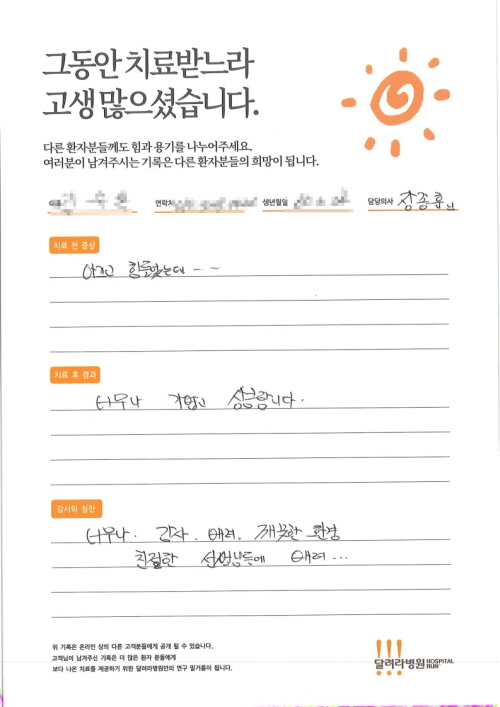 그동안 치료받느라
고생 많으셨습니다.
다른 환자분들께도 힘과 용기를 나누어주세요.
여러분이 남겨주시는 기록은 다른 환자분들의 희망이 됩니다.
연락처 생년월일 담당의사 장종훈님
치료 전 증상
아프고 힘들었는데 - -
치료 후 경과
너무나 가볍고 상큼합니다.
감사와 칭찬
너무나. 감사. 배려. 깨끗한 환경
친절한 선생님들에 배려...
위 기록은 온라인 상의 다른 고객분들에게 공개 될 수 있습니다.
고객님이 남겨주신 기록은 더 많은 환자 분들에게
보다 나은 치료를 제공하기 위한 달려라병원만의 연구 밑거름이 됩니다.
달려라병원 HOSPITAL RUN